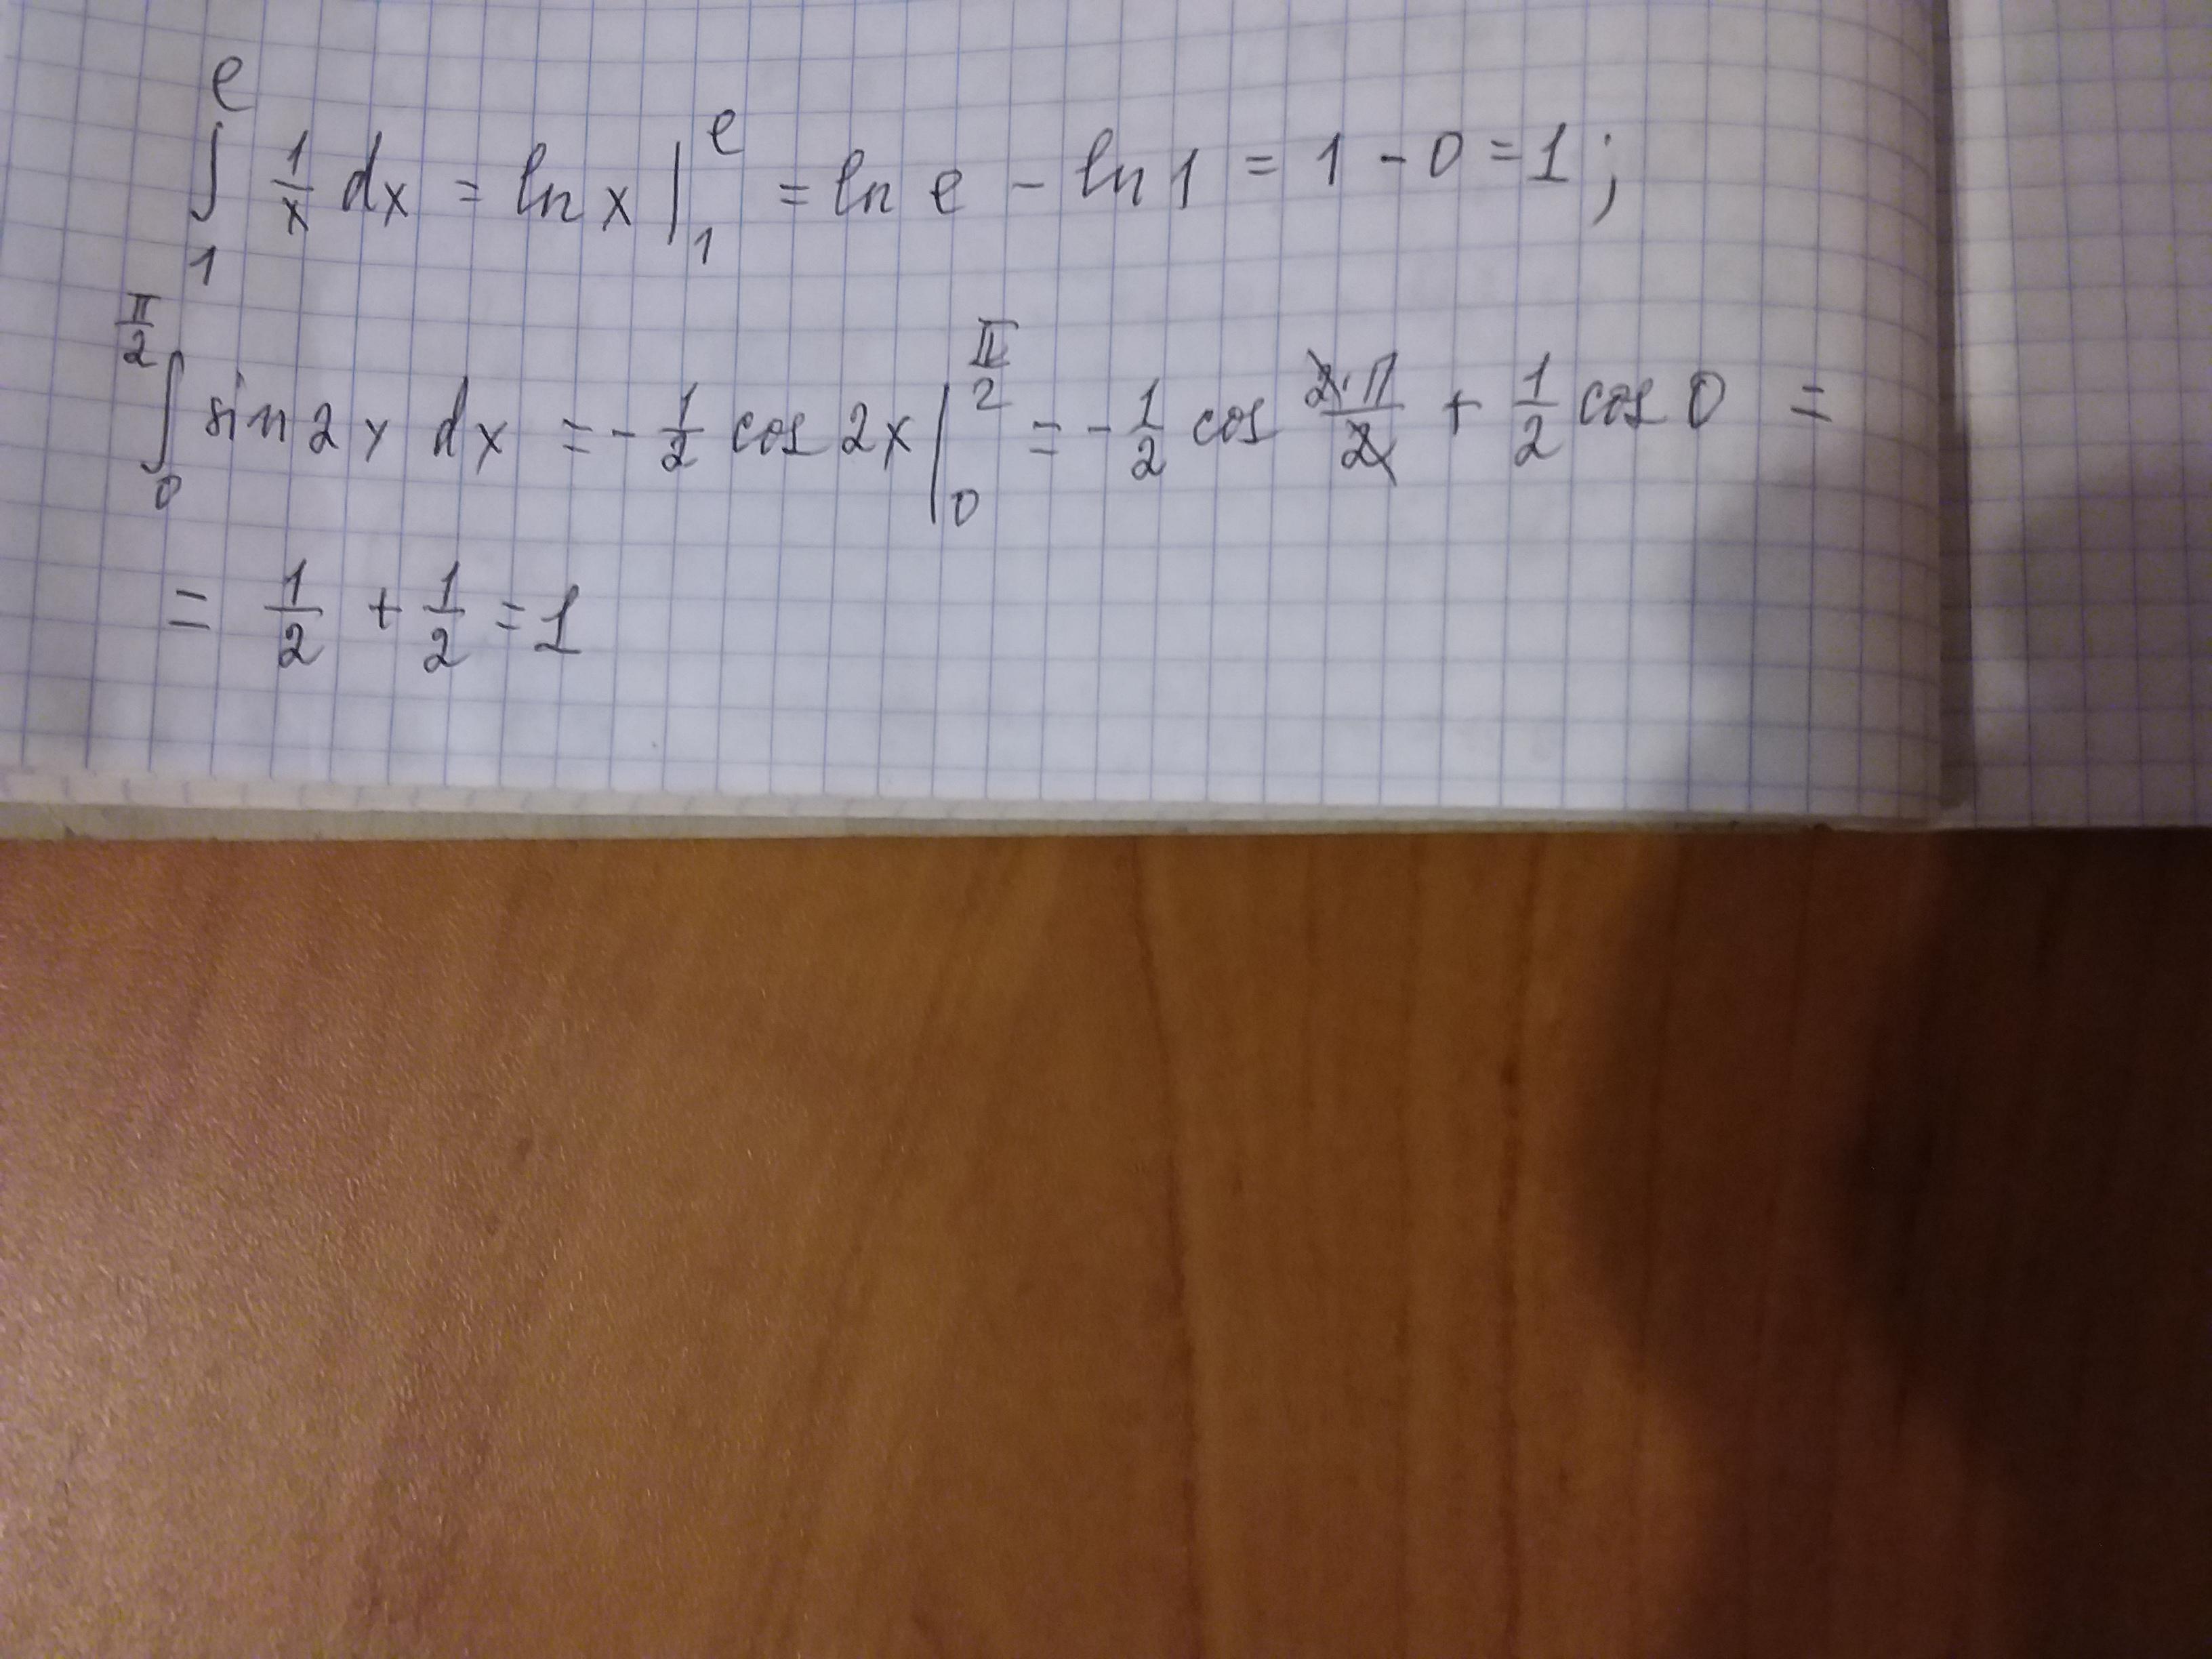 ∫₁ᵉ 1/x dx = ln x |₁ᵉ = ln e - ln 1 = 1 - 0 = 1;
∫₀^(π/2) sin 2x dx = - 1/2 cos 2x |₀^(π/2) = - 1/2 cos (2·π)/2 + 1/2 cos 0 =
= 1/2 + 1/2 = 1